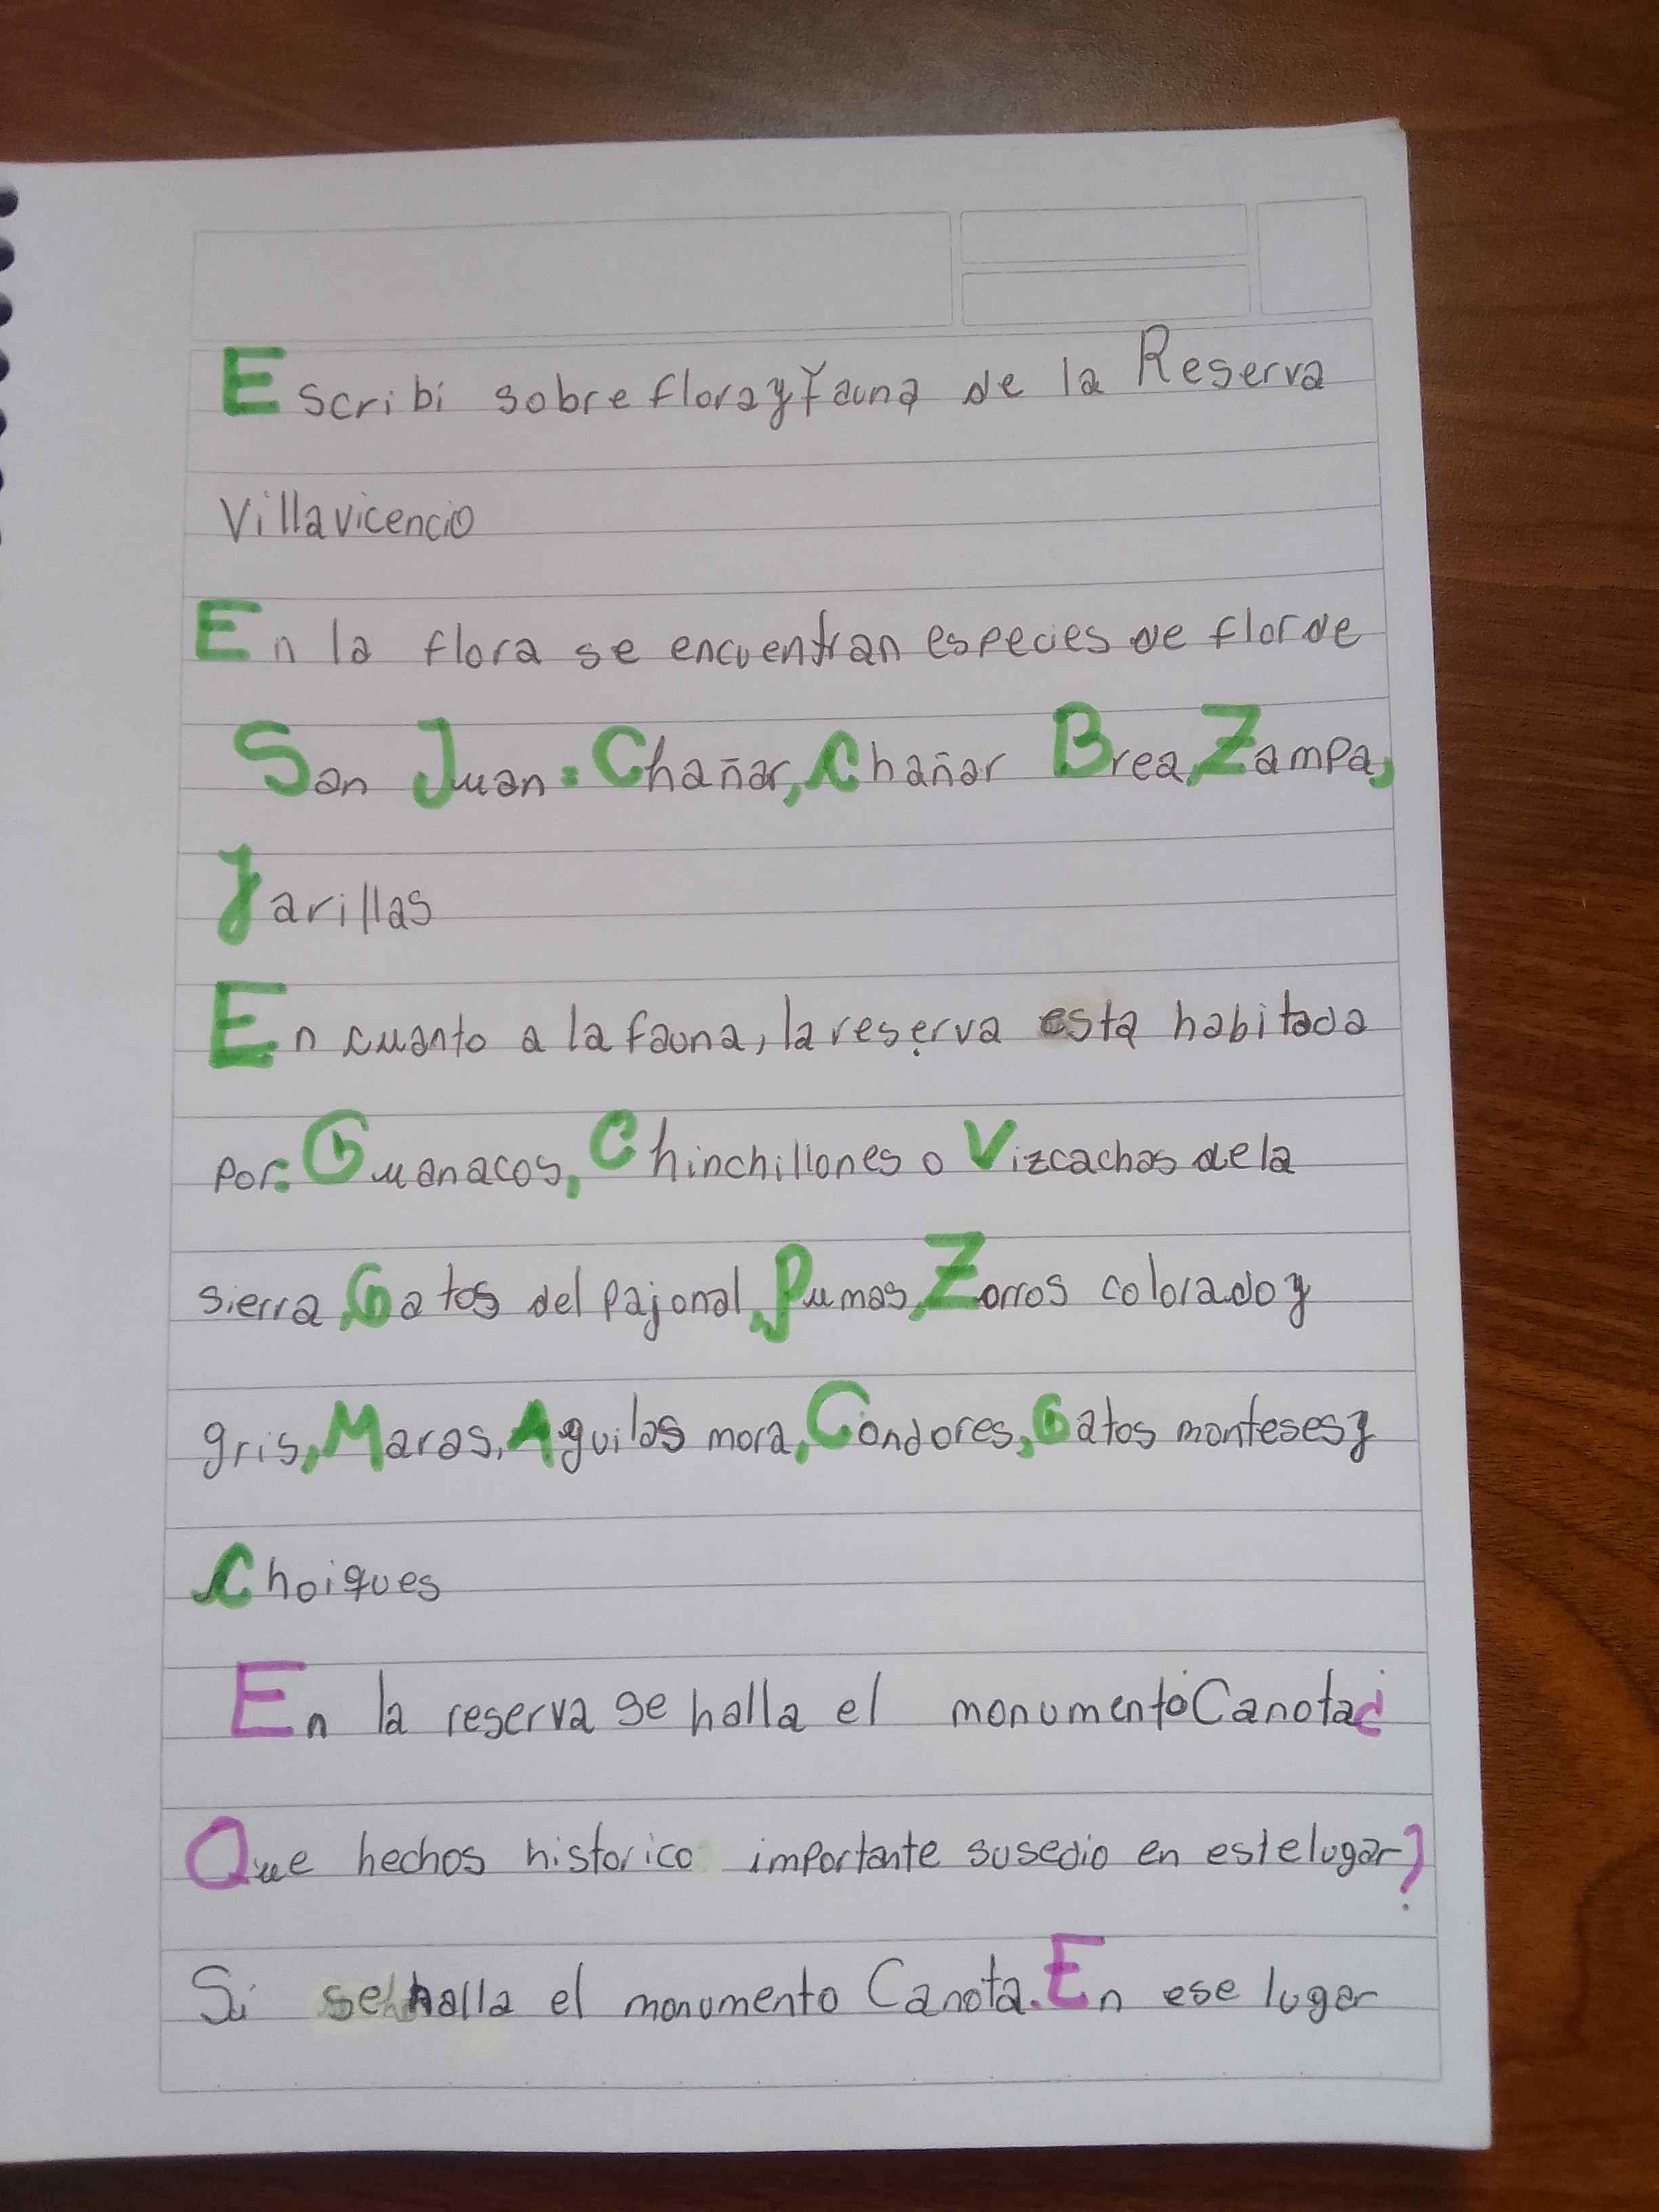 Escribi sobre flora y fauna de la Reserva
Villavicencio
En la flora se encuentran especies de flor de
San Juan: Chañar, Chañar Brea, Zampa,
Jarillas
En cuanto a la fauna, la reserva esta habitada
por: Guanacos, Chinchillones o Vizcachas de la
sierra, Gatos del pajonal, Pumas, Zorros colorado y
gris, Maras, Aguilas mora, Condores, Gatos monteses y
Choiques
En la reserva se halla el monumento Canota ¿
Que hechos historico importante susedio en este lugar?
Si se halla el monumento Canota. En ese lugar